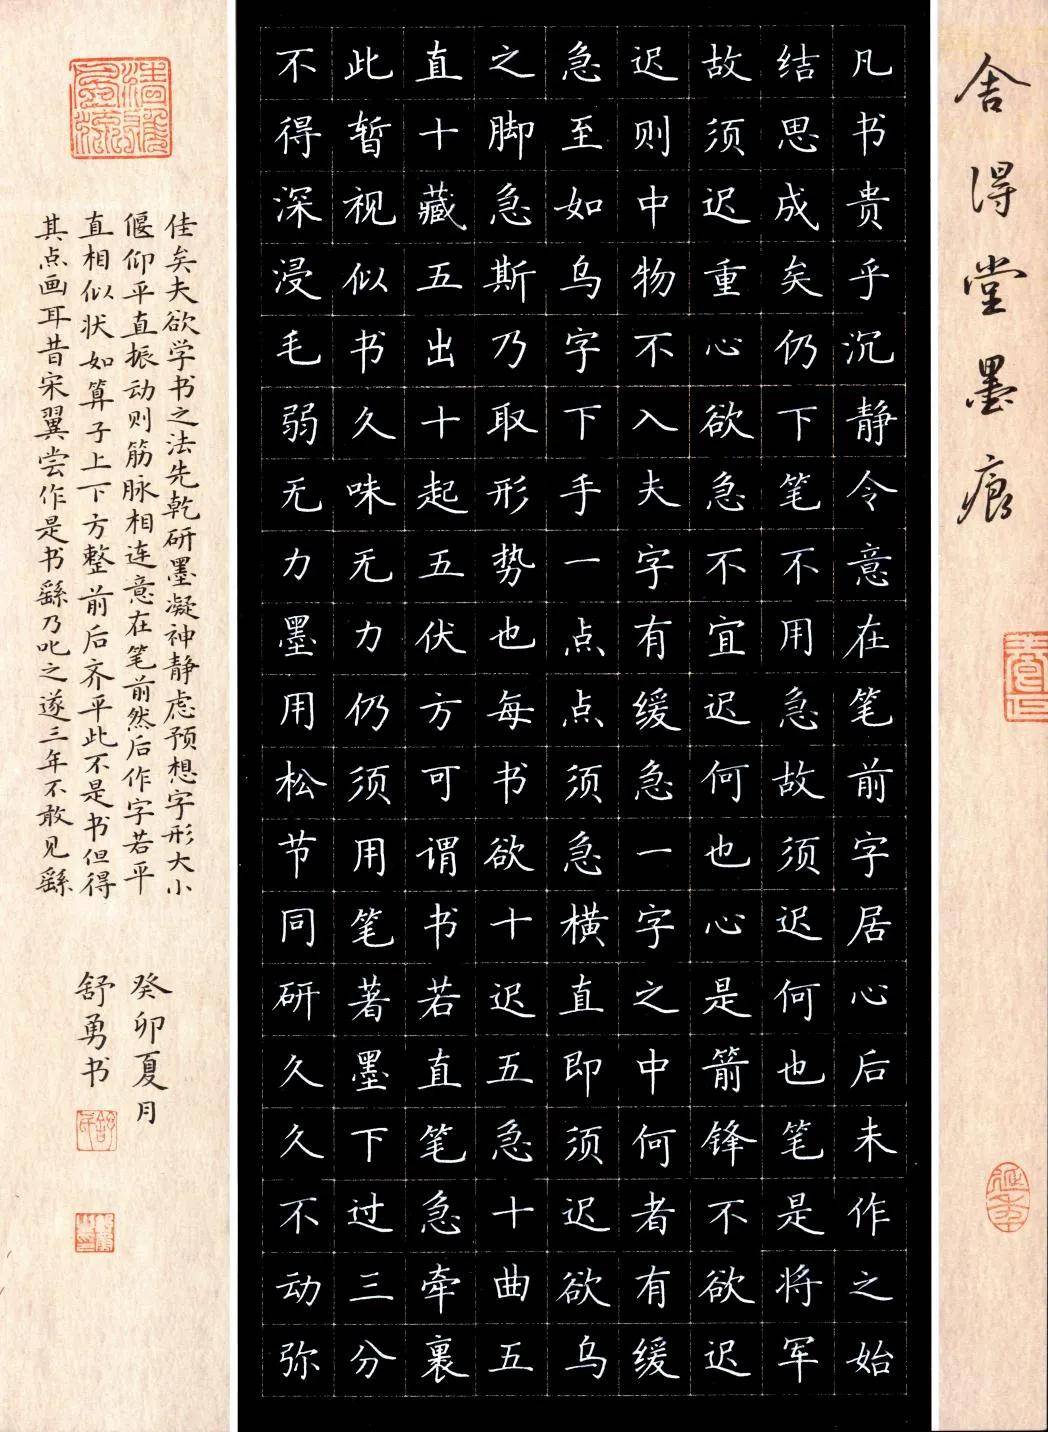 舍得堂墨痕
凡书贵乎沉静令意在笔前字居心后未作之始
结思成矣仍下笔不用急故须迟何也笔是将军
故须迟重心欲急不宜迟何也心是箭锋不欲迟
迟则中物不入夫字有缓急一字之中何者有缓
急至如乌字下手一点点须急横直即须迟欲乌
之脚急斯乃取形势也每书欲十迟五急十曲五
直十藏五出十起五伏方可谓书若直笔急牵裹
此暂视似书久味无力仍须用笔著墨下过三分
不得深浸毛弱无力墨用松节同研久久不动弥
佳矣夫欲学书之法先乾研墨凝神静虑预想字形大小
偃仰平直振动则筋脉相连意在笔前然后作字若平
直相似状如算子上下方整前后齐平此不是书但得
其点画耳昔宋翼尝作是书繇乃叱之遂三年不敢见繇
癸卯夏月
舒勇书
延年